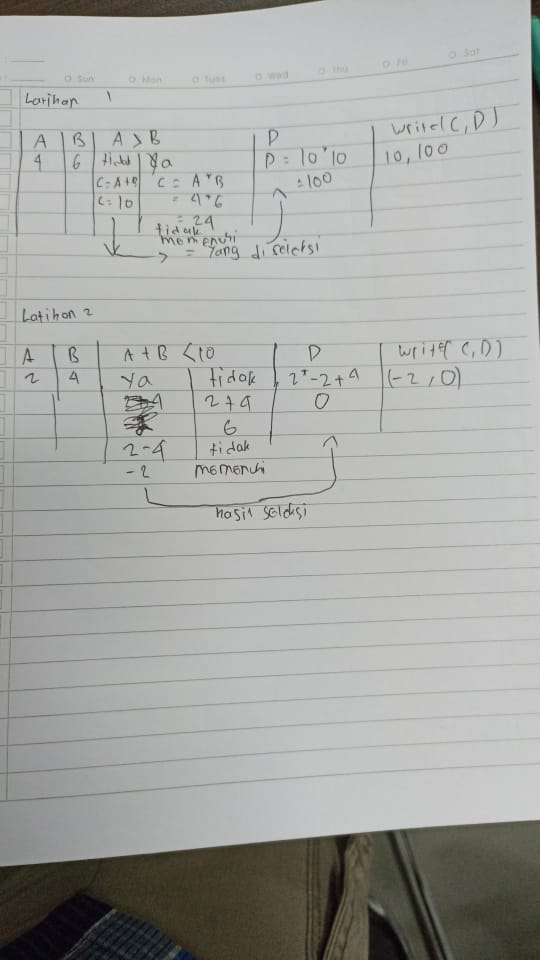 Sun Mon Tues Wed Thu Fri Sat
Latihan 1
A B A > B D write(C,D)
4 6 tidak Ya D = 10*10 10, 100
C=A+B C = A*B =100
C=10 = 4*6
= 24
tidak
memenuhi
= yang diseleksi
Latihan 2
A B A+B <10 D write( C,D)
2 4 Ya tidak 2*-2+4 (-2,0)
2+4 0
6
2-4 tidak
-2 memenuhi
hasil seleksi